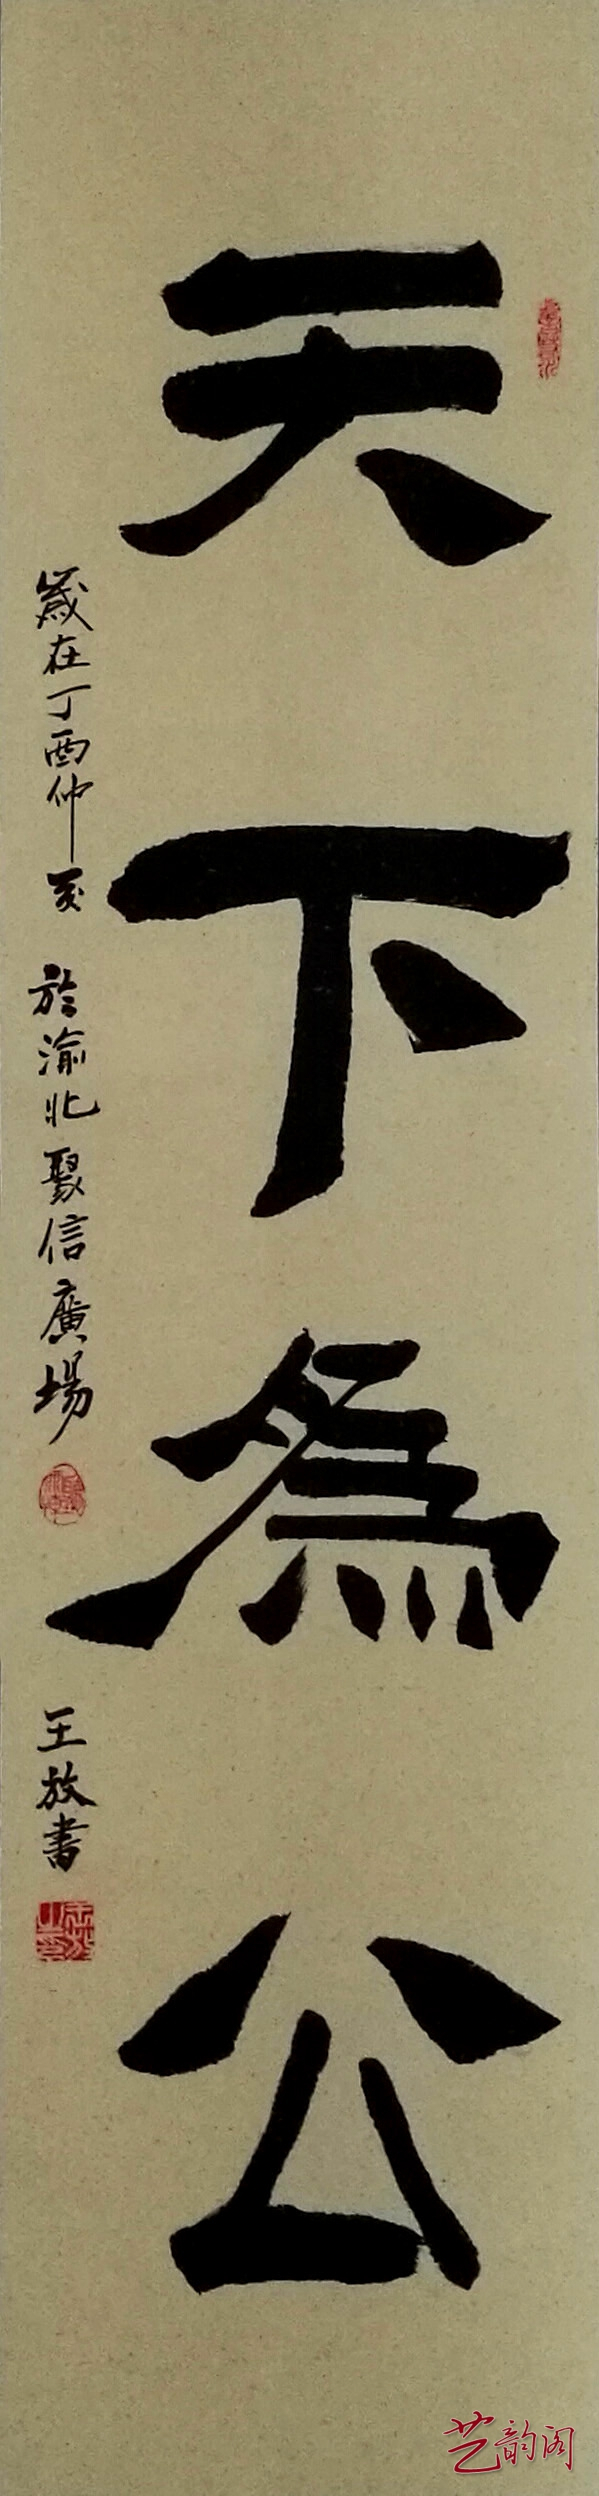 天下為公
歲在丁酉仲夏 於渝北聚信廣場
王放書
艺韵阁